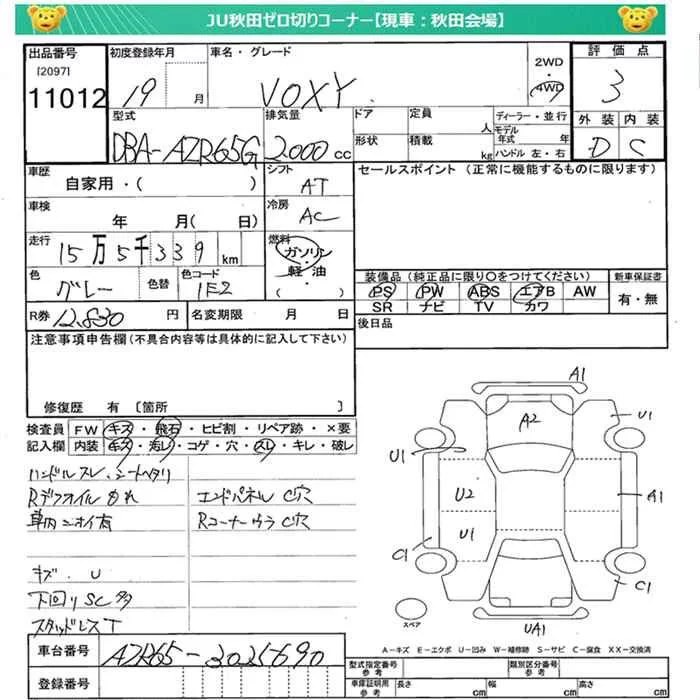 JU秋田ゼロ切りコーナー【現車:秋田会場】
出品番号 [2097] 11012
初度登録年月 19 月
車名・グレード VOXY
2WD・4WD
評価点 3
型式 DBA-AZR65G
排気量 2000 cc
ドア 形状
定員 人 積載 kg
ディーラー・並行
モデル年式 年
ハンドル 左・右
外装 D 内装 C
車歴 自家用・( )
シフト AT
セールスポイント (正常に機能するものに限ります)
車検 年 月( 日)
冷房 AC
走行 15万5千339 km
燃料 ガソリン・軽油・( )
色 グレー 色替 色コード 1E2
装備品(純正品に限り○をつけてください) 新車保証書
PS PW ABS エアB AW 有・無
SR ナビ TV カワ
R券 12,830 円 名変期限 月 日
後日品
注意事項申告欄(不具合内容等は具体的に記入して下さい)
修復歴 有 [箇所 ]
検査員 FW キズ・飛石・ヒビ割・リペア跡・×要
記入欄 内装 キズ・汚レ・コゲ・穴・スレ・キレ・破レ
ハンドルスレ、シートヘタリ
Rデフオイルもれ
エンドパネル C穴
車内ニオイ有
Rコーナーウラ C穴
キズ.U
下回りSC多
スタッドレスT
A1
A2
U1
U1
U2
A1
U1
C1
C1
UA1
スペア
A-キズ E-エクボ U-凹み W-補修跡 S-サビ C-腐食 XX-交換済
車台番号 AZR65-3025690
型式指定番号 参考 類別区分番号 参考
登録番号
車庫証明用 参考 長さ cm 幅 cm 高さ cm